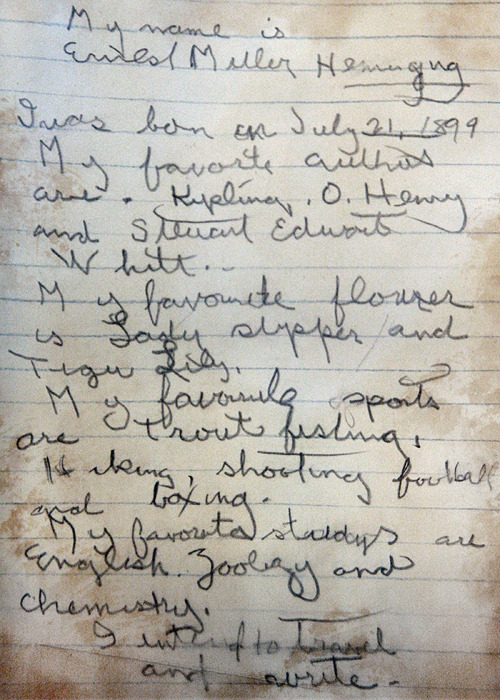 My name is
Ernest Miller Hemingway
I was born on July 21, 1899
My favorite authors
are. Kypling, O. Henry
and Steuart Edward
Whitt.
My favourite flower
is Lady slipper and
Tiger Lily.
My favourite sports
are Trout fishing,
Hiking, shooting football
and boxing.
My favorite studdys are
English. Zoology and
Chemistry.
I intend to Travel
and write.